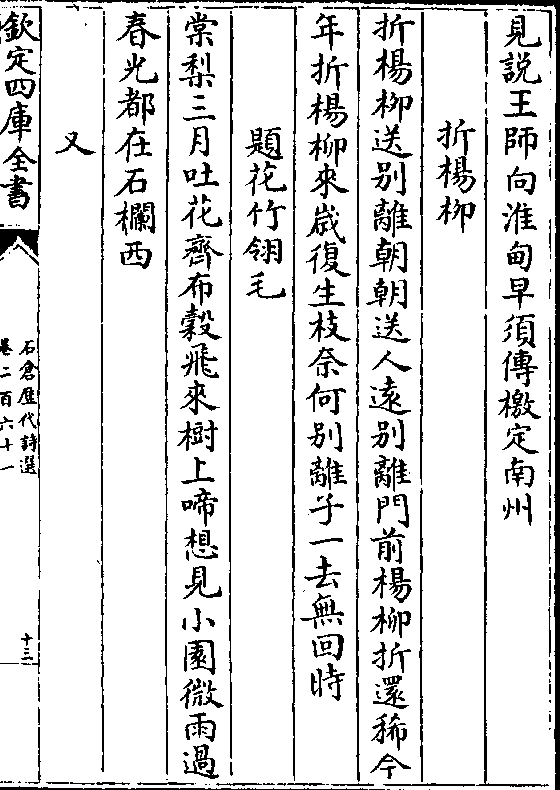 見說王師向淮甸早須傳檄定南州
折楊柳
折楊柳送別離朝朝送人遠別離門前楊柳折還稀今
年折楊柳來歳復生枝奈何別離子一去無回時
題花竹翎毛
棠梨三月吐花齊布穀飛來樹上啼想見小園微雨過
春光都在石欄西
又
欽定四庫全書
石倉歴代詩選
卷二百六十一
十三